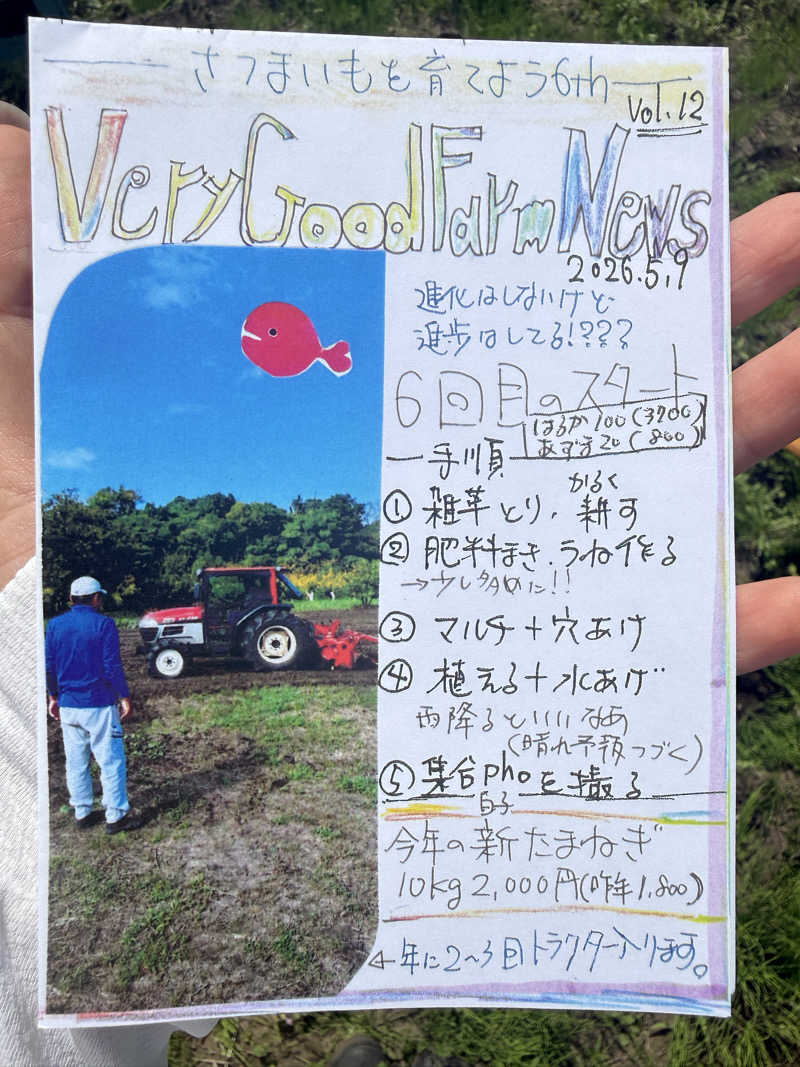 さつまいもを育てよう6th
Vol.12
Very Good Farm News
2026.5.9
進化はしないけど
進歩はしてる!???
6回目のスタート
はるか100(3700)
あずま20(800)
手順
かるく
① 雑草とり、耕す
② 肥料まき、うね作る
→少し多めに!!
③ マルチ+穴あけ
④ 植える+水あげ
雨降るといいなあ
(晴れ予報つづく)
⑤ 集合phoを撮る
白子
今年の新たまねぎ
10kg 2,000円(昨年1,800)
←年に2〜3回トラクター入ります。